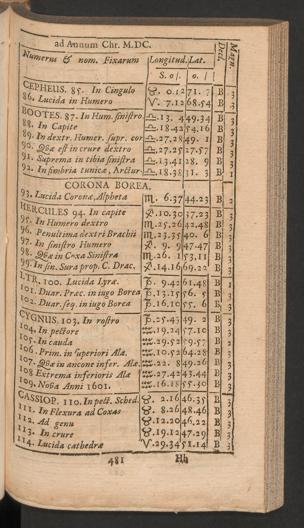 ad Annum Chr. M.DC.
Numerus & nom. Fixarum Longitud. Lat. Decl. Magn.
S. o /. o. /
CEPHEUS. 85. In Cingulo ♉. 0.12 71. 7 B 3
86. Lucida in Humero ♈. 7.12 68.54 B 3
BOOTES. 87. In Hum. sinistro ♎. 13. 4 49.34 B 3
88. In Capite ♎. 18.42 54.16 B 3
89. In dextr. Humer. supr. cor ♎. 27.28 49. 1 B 3
90. Quæ est in crure dextro ♎. 27.25 27.57 B 3
91. Suprema in tibia sinistra ♎. 13.41 28. 9 B 3
92. In fimbria tunicæ, Arctur ♎. 18.38 31. 3 B 1
CORONA BOREA.
93. Lucida Coronæ, Alpheta ♏. 6.37 44.23 B 2
HERCULES 94. In capite ♐. 10.30 37.23 B 3
95. In Humero dextro ♏. 25.26 42.48 B 3
96. Penultima dextri Brachii ♏. 23.35 40. 6 B 3
97. In sinistro Humero ♐. 9. 9 47.47 B 3
98. Quæ in Coxa Sinistra ♏. 26. 1 53.11 B 3
99. In sin. Sura prop. C. Drac. ♐. 14.16 69.22 B 3
LYR. 100. Lucida Lyræ. ♑. 9.42 61.48 B 1
101. Duar. Præc. in iugo Borea ♑. 13.15 56. 5 B 3
102. Duar. seq. in iugo Borea ♑. 16.10 55. 6 B 3
CYGNUS. 103. In rostro ♑. 25.43 49. 2 B 3
104. In pectore ♒. 19.24 57.10 B 3
105. In cauda ♒. 29.52 59.57 B 2
106. Prim. in superiori Alæ. ♒. 10.52 64.28 B 3
107. Quæ in ancone infer. Alæ. ♒. 22. 8 49.26 B 3
108 Extrema inferioris Alæ ♒. 27.42 43.44 B 3
109. Nova Anni 1601. ♒. 16.18 55.30 B 3
CASSIOP. 110. In pect. Sched. ♉. 2.16 46.35 B 3
111. In Flexura ad Coxas ♉. 8.26 48.46 B 3
112. Ad genu ♉. 12.20 46.22 B 3
113. In crure ♉. 19.12 47.29 B 3
114. Lucida cathedræ ♈. 29.34 51.14 B 3
481 Hh